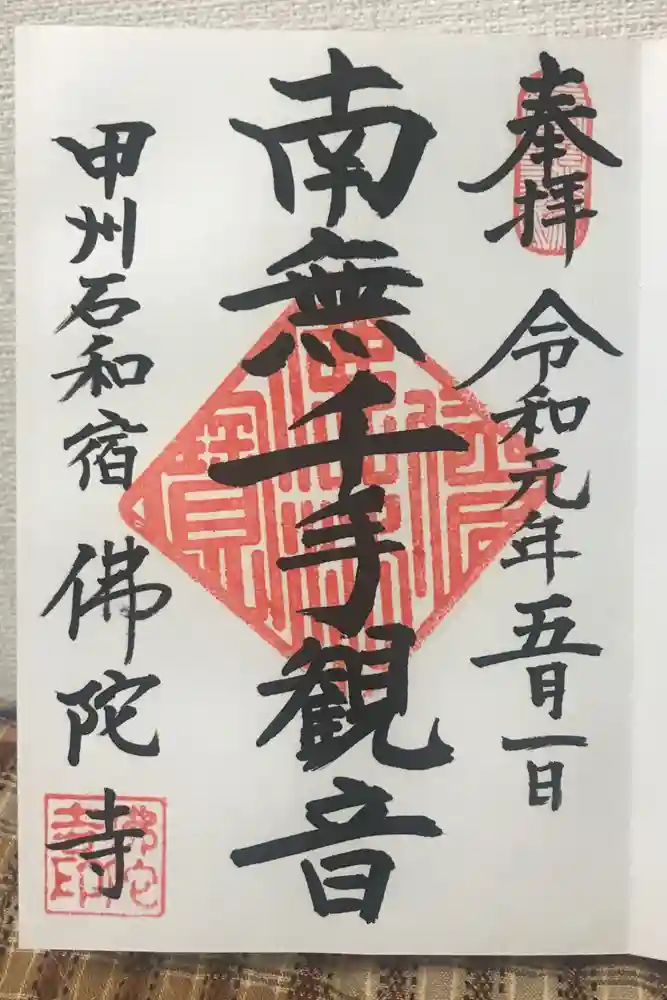 奉拝
令和元年五月一日
南無千手観音
甲州石和宿
佛陀寺
佛陀寺印